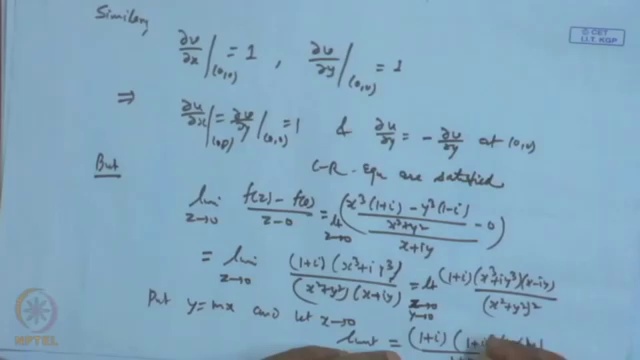 Similarly
∂v/∂x|(0,0) = 1 , ∂v/∂y|(0,0) = 1
⇒ ∂u/∂x|(0,0) = ∂v/∂y|(0,0) = 1 & ∂u/∂y = - ∂v/∂y at (0,0)
But C-R. Equ are satisfied
lim z→0 (f(z) - f(0))/(z-0) = lt z→0 ((x³(1+i) - y³(1-i))/(x²+y²) - 0)/(x+iy)
= lim z→0 (1+i)(x³+iy³)/((x²+y²)(x+iy)) = lt x→0 y→0 (1+i)(x³+iy³)(x-iy)/(x²+y²)²
Put y=mx and let x→0
limit = (1+i)
© CET
I.I.T. KGP
NPTEL